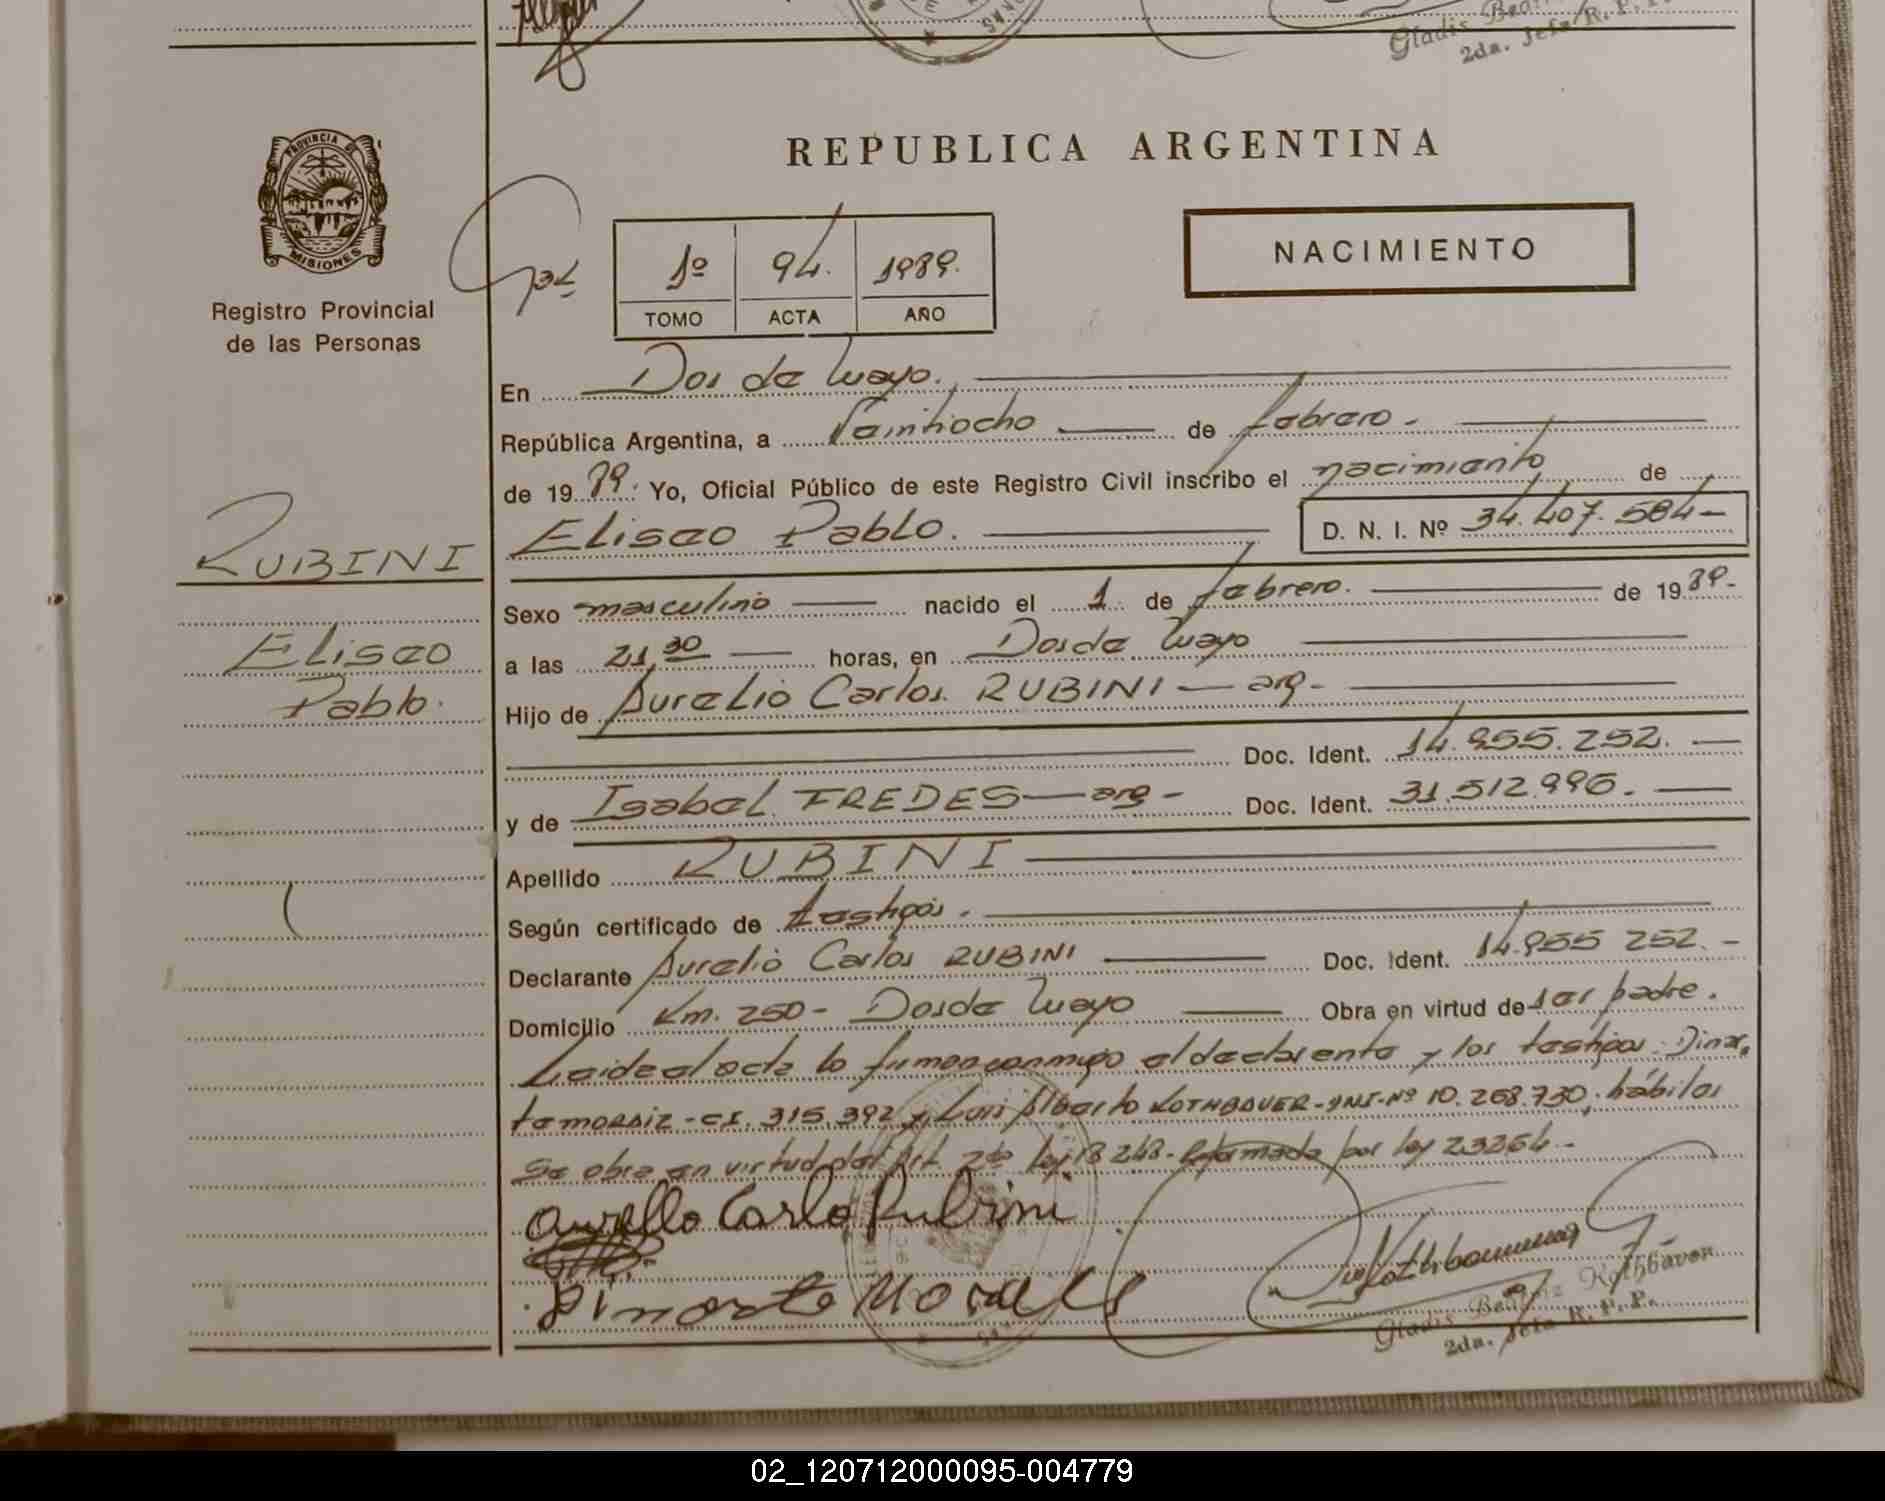 Gladis Bea
2da. Jefa R. P. P.
PROVINCIA DE
MISIONES
Registro Provincial
de las Personas
REPUBLICA ARGENTINA
NACIMIENTO
1º 94. 1989.
TOMO ACTA AÑO
En Dos de Mayo.
República Argentina, a Veintiocho de febrero.
de 19 89. Yo, Oficial Público de este Registro Civil inscribo el nacimiento de
Eliseo Pablo. D. N. I. Nº 34.407.584
RUBINI
Eliseo
Pablo.
Sexo masculino nacido el 1 de febrero. de 19 89.
a las 21,30 horas, en Dos de Mayo
Hijo de Aurelio Carlos RUBINI — arg-
Doc. Ident. 14.955.252.
y de Isabel FREDES — arg- Doc. Ident. 31.512.996.
Apellido RUBINI
Según certificado de testigos.
Declarante Aurelio Carlos RUBINI Doc. Ident. 14.955 252.
Domicilio Km. 250 - Dos de Mayo Obra en virtud de ser padre.
Leida el acta lo firman conmigo el declarante y los testigos: Dinar
te MORAIZ - CI. 315.392 y Luis Alberto KOTHBAUER - DNI-Nº 10.268.730, hábiles
Se obra en virtud del Art. 2do ley 18 248. Reformada por ley 23264.-
Aurello Carlo Rubini
Dinarte Moraes
Gladis Beatriz Kothbaver
2da. Jefa R. P. P.
02_120712000095-004779